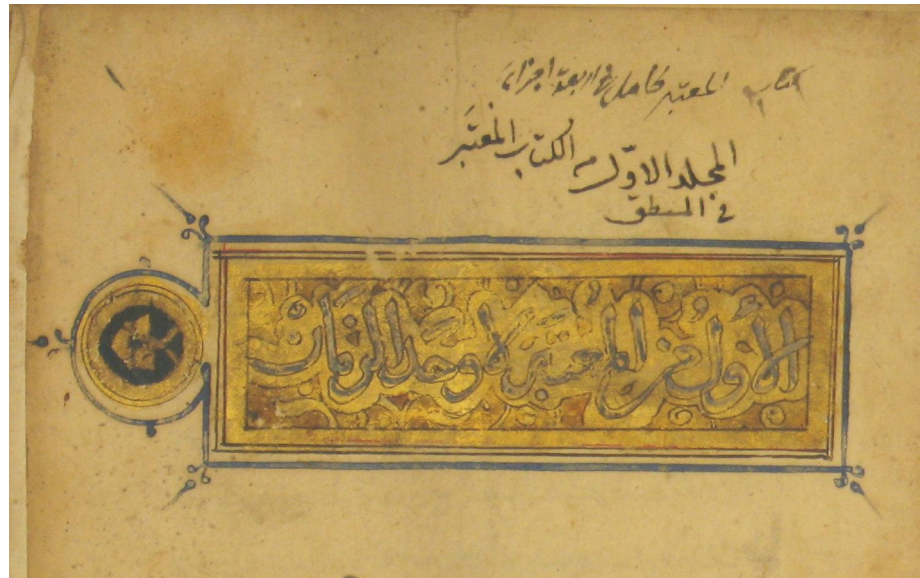 كتاب المعتبر كامل في اربعة اجزاء
المجلد الاول من الكتاب المعتبر
في المنطق
الأول من المعتبر لاوحد الزمان